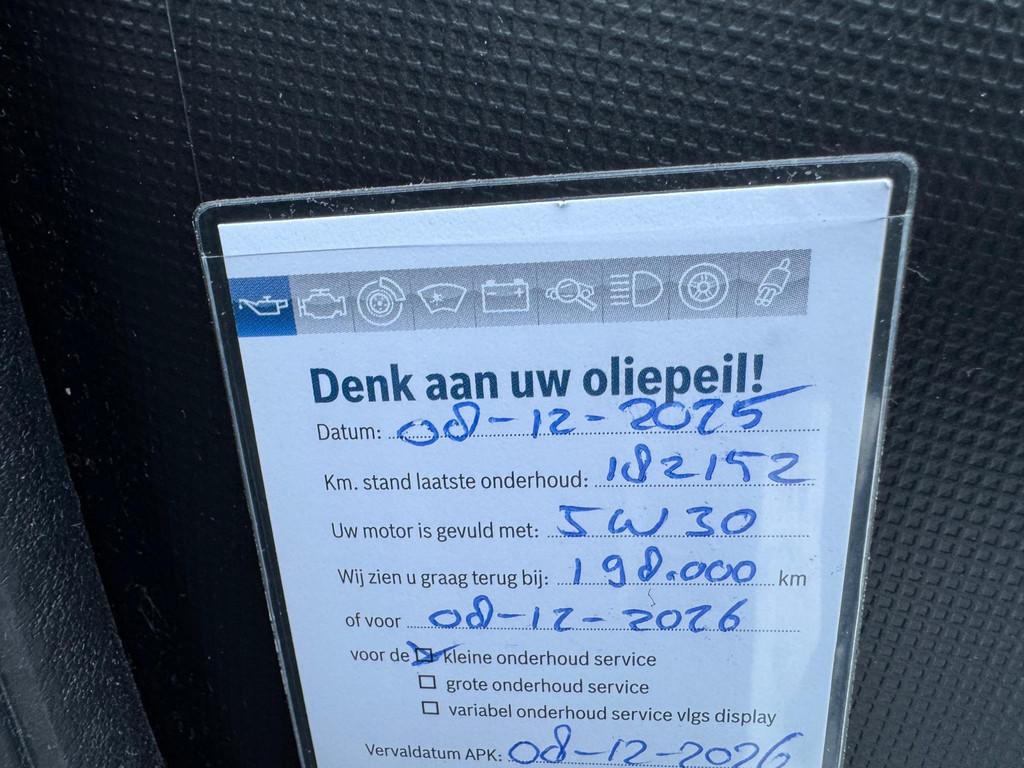 Denk aan uw oliepeil!
Datum: 08-12-2025
Km. stand laatste onderhoud: 182152
Uw motor is gevuld met: 5W30
Wij zien u graag terug bij: 198.000 km
of voor 08-12-2026
voor de ☑ kleine onderhoud service
☐ grote onderhoud service
☐ variabel onderhoud service vlgs display
Vervaldatum APK: 08-12-2026